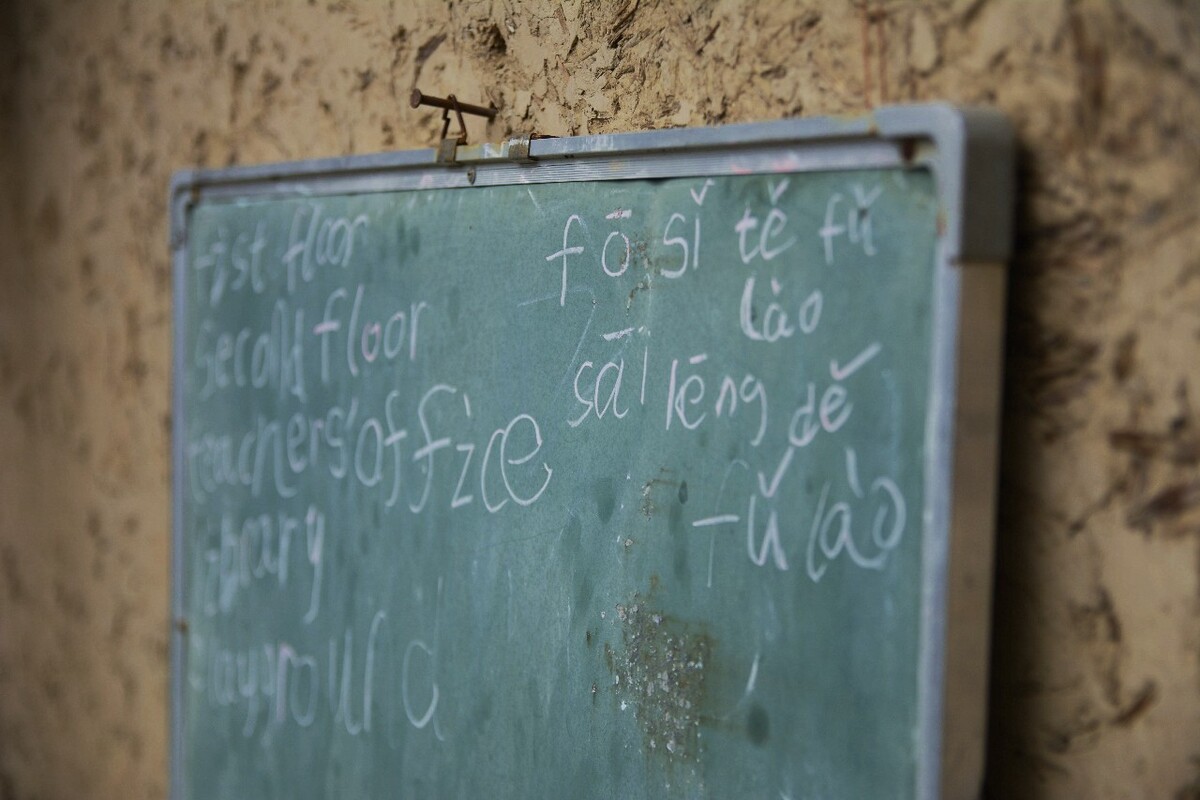 fist floor
Secand floor
teachers'office
library
fō sǐ tě fǔ
lào
sāi kēng dě
fǔ lào